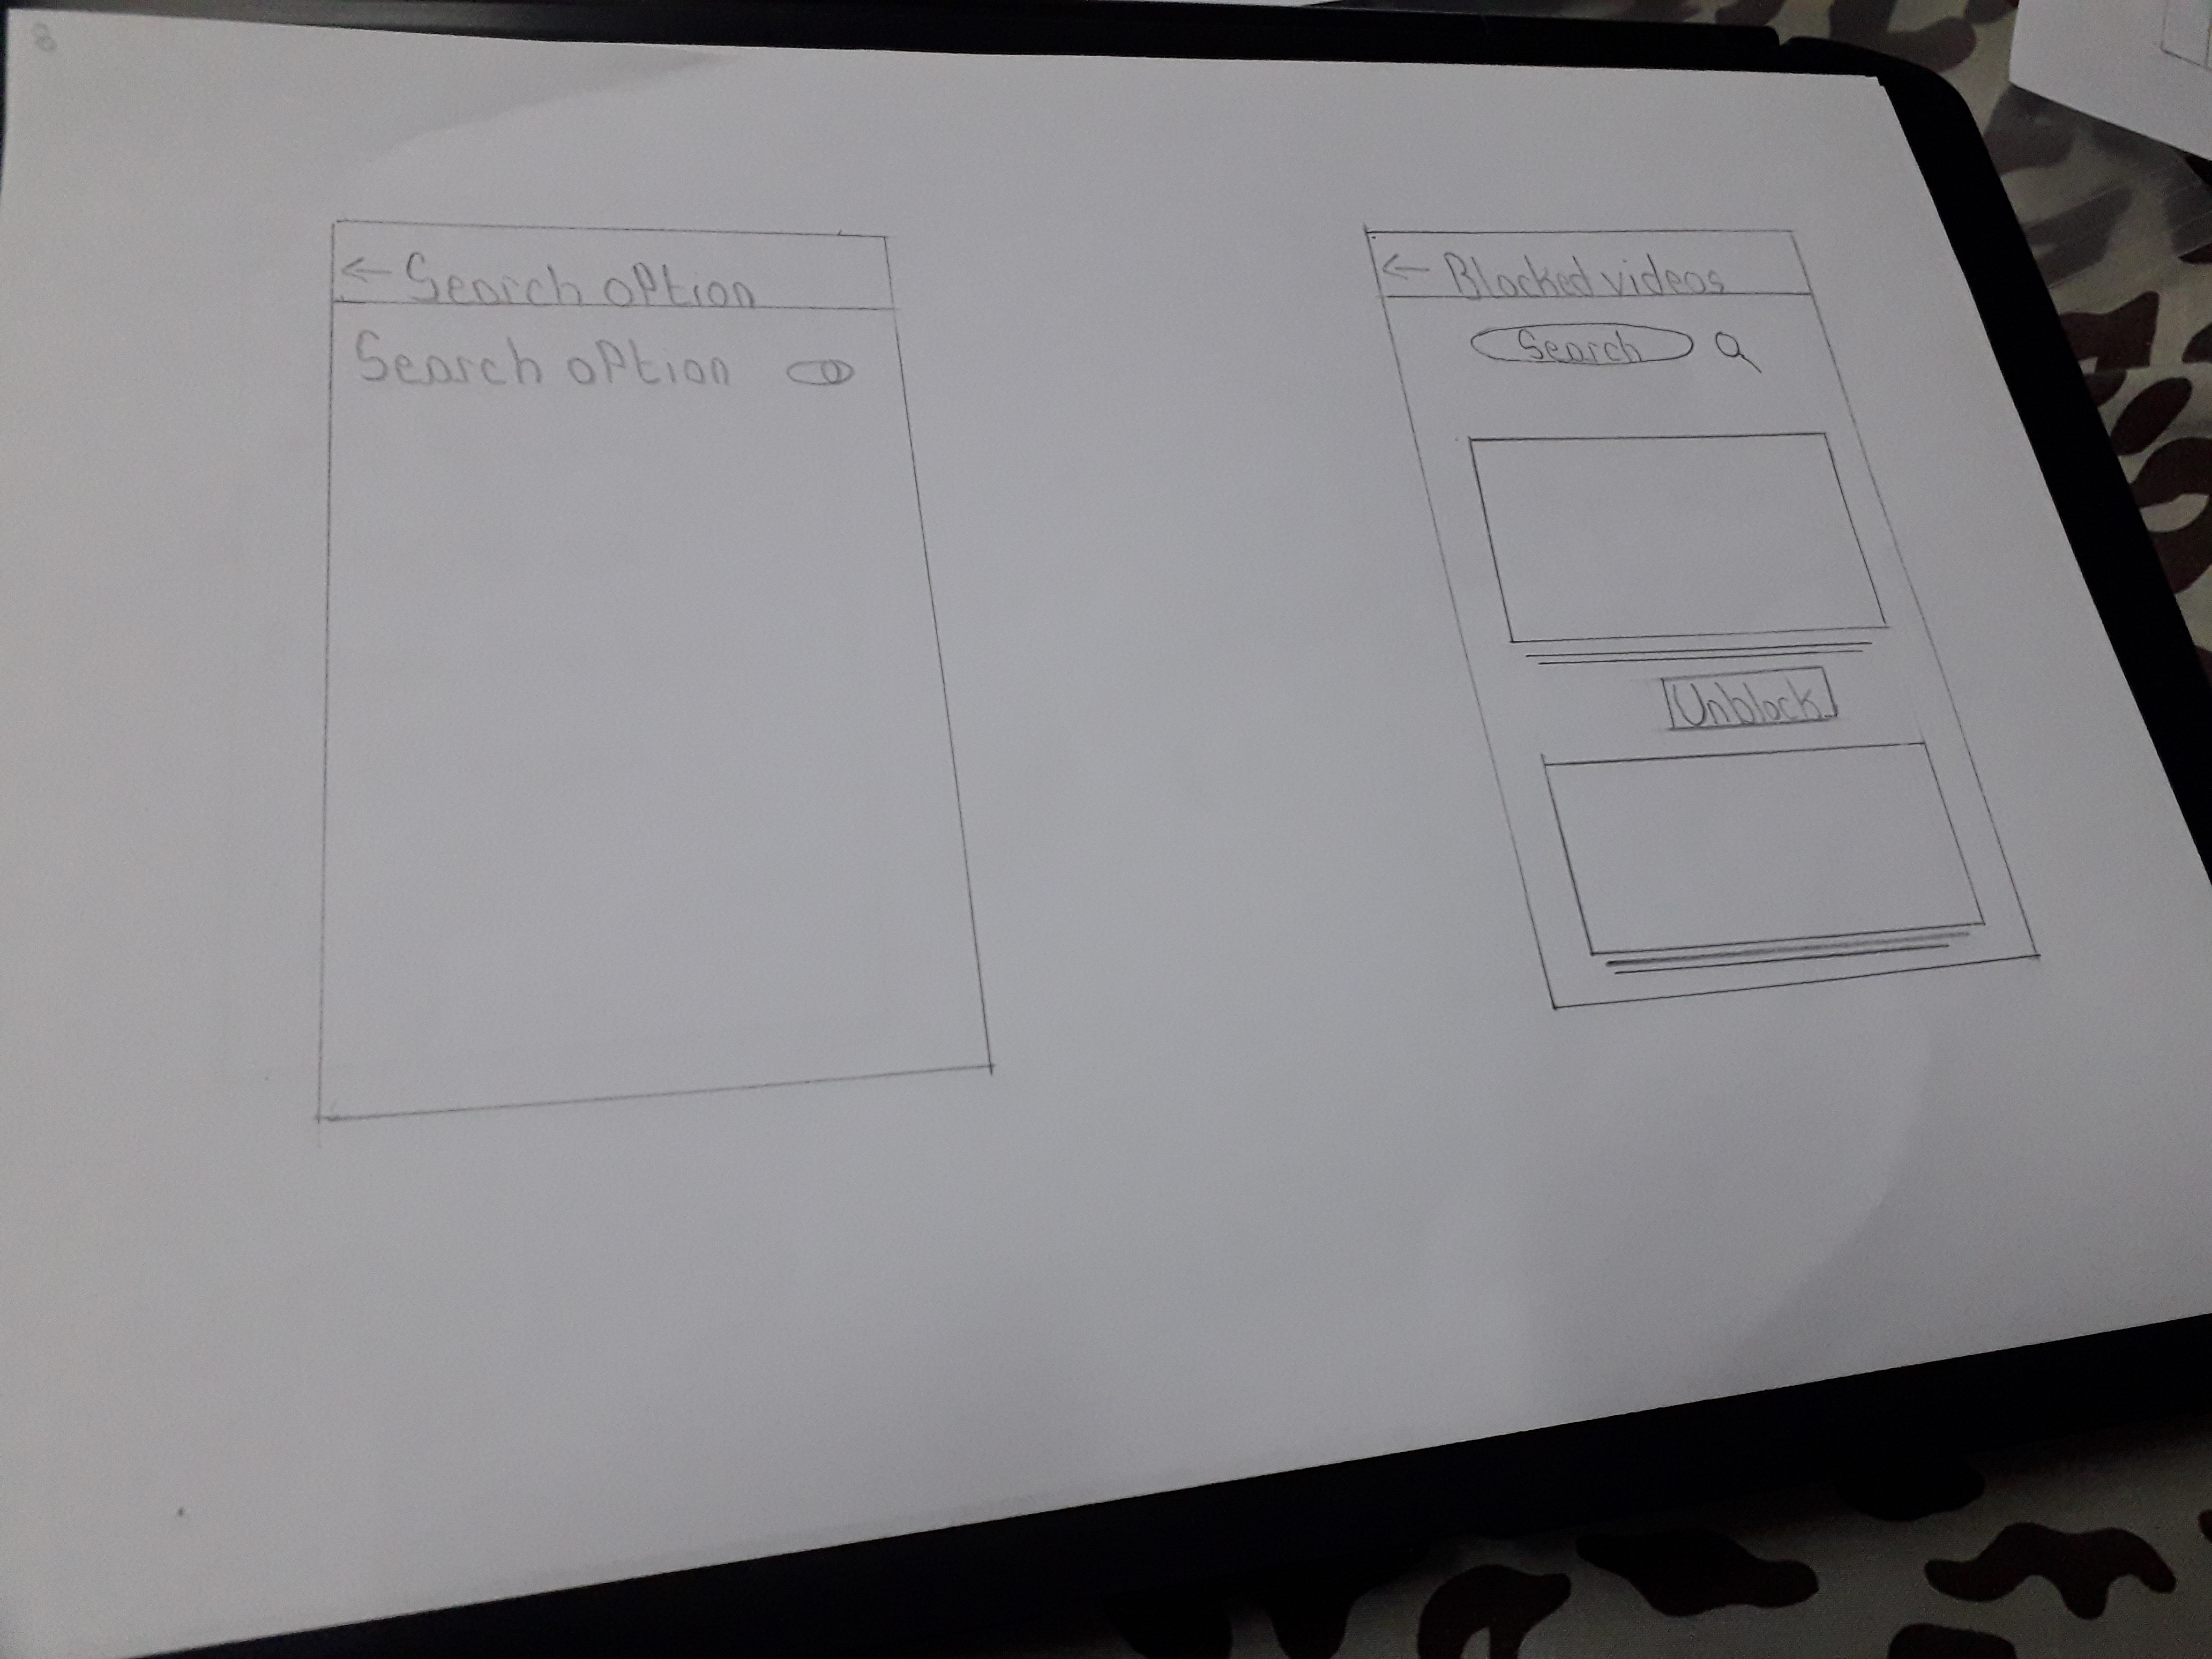 8
← Search option
Search option
← Blocked videos
Search
Unblock